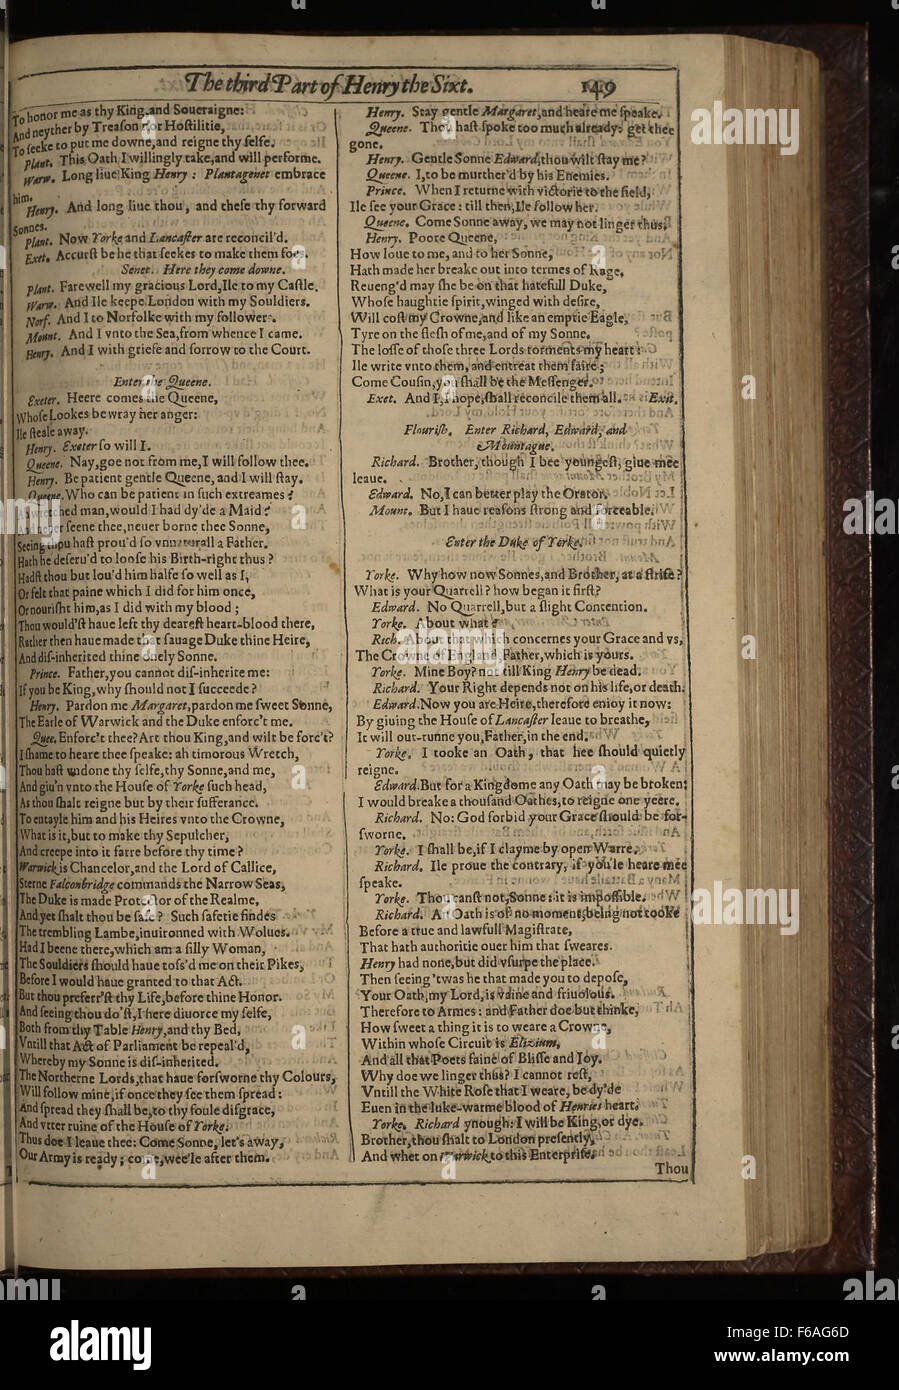 The third Part of Henry the Sixt. 149
To honor me as thy King, and Soueraigne:
And neyther by Treason nor Hostilitie,
To seeke to put me downe, and reigne thy selfe.
Plant. This Oath I willingly take, and will performe.
Warw. Long liue King Henry: Plantagenet embrace
him.
Henry. And long liue thou, and these thy forward
Sonnes.
Plant. Now Yorke and Lancaster are reconcil'd.
Exet. Accurst be he that seekes to make them foes.
Senet. Here they come downe.
Plant. Farewell my gracious Lord, Ile to my Castle.
Warw. And Ile keepe London with my Souldiers.
Norf. And I to Norfolke with my followers.
Mount. And I vnto the Sea, from whence I came.
Henry. And I with griefe and sorrow to the Court.
Enter the Queene.
Exeter. Heere comes the Queene,
Whose Lookes bewray her anger:
Ile steale away.
Henry. Exeter so will I.
Queene. Nay, goe not from me, I will follow thee.
Henry. Be patient gentle Queene, and I will stay.
Queene. Who can be patient in such extreames?
Ah wretched man, would I had dy'de a Maid?
And neuer seene thee, neuer borne thee Sonne,
Seeing thou hast prou'd so vnnaturall a Father.
Hath he deseru'd to loose his Birth-right thus?
Hadst thou but lou'd him halfe so well as I,
Or felt that paine which I did for him once,
Or nourisht him, as I did with my blood;
Thou would'st haue left thy dearest heart-blood there,
Rather then haue made that sauage Duke thine Heire,
And dis-inherited thine onely Sonne.
Prince. Father, you cannot dis-inherite me:
If you be King, why should not I succeede?
Henry. Pardon me Margaret, pardon me sweet Sonne,
The Earle of Warwick and the Duke enforc't me.
Quee. Enforc't thee? Art thou King, and wilt be forc't?
I shame to heare thee speake: ah timorous Wretch,
Thou hast vndone thy selfe, thy Sonne, and me,
And giu'n vnto the House of Yorke such head,
As thou shalt reigne but by their sufferance.
To entayle him and his Heires vnto the Crowne,
What is it, but to make thy Sepulcher,
And creepe into it farre before thy time?
Warwick is Chancelor, and the Lord of Callice,
Sterne Falconbridge commands the Narrow Seas,
The Duke is made Protector of the Realme,
And yet shalt thou be safe? Such safetie findes
The trembling Lambe, inuironned with Wolues.
Had I beene there, which am a silly Woman,
The Souldiers should haue toss'd me on their Pikes,
Before I would haue granted to that Act.
But thou preferr'st thy Life, before thine Honor.
And seeing thou do'st, I here diuorce my selfe,
Both from thy Table Henry, and thy Bed,
Vntill that Act of Parliament be repeal'd,
Whereby my Sonne is dis-inherited.
The Northerne Lords, that haue forsworne thy Colours,
Will follow mine, if once they see them spread:
And spread they shall be, to thy foule disgrace,
And vtter ruine of the House of Yorke.
Thus doe I leaue thee: Come Sonne, let's away,
Our Army is ready; come, wee'le after them.
Henry. Stay gentle Margaret, and heare me speake.
Queene. Thou hast spoke too much already: get thee
gone.
Henry. Gentle Sonne Edward, thou wilt stay me?
Queene. I, to be murther'd by his Enemies.
Prince. When I returne with victorie to the field,
Ile see your Grace: till then, Ile follow her.
Queene. Come Sonne away, we may not linger thus.
Henry. Poore Queene,
How loue to me, and to her Sonne,
Hath made her breake out into termes of Rage,
Reueng'd may she be on that hatefull Duke,
Whose haughtie spirit, winged with desire,
Will cost my Crowne, and like an emptie Eagle,
Tyre on the flesh of me, and of my Sonne.
The losse of those three Lords torments my heart:
Ile write vnto them, and entreat them faire;
Come Cousin, you shall be the Messenger.
Exet. And I, I hope, shall reconcile them all. Exit.
Flourish. Enter Richard, Edward, and
Mountague.
Richard. Brother, though I bee youngest, giue mee
leaue.
Edward. No, I can better play the Orator.
Mount. But I haue reasons strong and forceable.
Enter the Duke of Yorke.
Yorke. Why how now Sonnes, and Brother, at a strife?
What is your Quarrell? how began it first?
Edward. No Quarrell, but a slight Contention.
Yorke. About what?
Rich. About that which concernes your Grace and vs,
The Crowne of England, Father, which is yours.
Yorke. Mine Boy? not till King Henry be dead.
Richard. Your Right depends not on his life, or death.
Edward. Now you are Heire, therefore enioy it now:
By giuing the House of Lancaster leaue to breathe,
It will out-runne you, Father, in the end.
Yorke. I tooke an Oath, that hee should quietly
reigne.
Edward. But for a Kingdome any Oath may be broken:
I would breake a thousand Oathes, to reigne one yeere.
Richard. No: God forbid your Grace should be for-
sworne.
Yorke. I shall be, if I clayme by open Warre.
Richard. Ile proue the contrary, if you'le heare mee
speake.
Yorke. Thou canst not, Sonne: it is impossible.
Richard. An Oath is of no moment, being not tooke
Before a true and lawfull Magistrate,
That hath authoritie ouer him that sweares.
Henry had none, but did vsurpe the place.
Then seeing 'twas he that made you to depose,
Your Oath, my Lord, is vaine and friuolous.
Therefore to Armes: and Father doe but thinke,
How sweet a thing it is to weare a Crowne,
Within whose Circuit is Elizium,
And all that Poets faine of Blisse and Ioy.
Why doe we linger thus? I cannot rest,
Vntill the White Rose that I weare, be dy'de
Euen in the luke-warme blood of Henries heart.
Yorke. Richard ynough: I will be King, or dye.
Brother, thou shalt to London presently,
And whet on Warwick to this Enterprise.
Thou
alamy
Image ID: F6AG6D
www.alamy.com